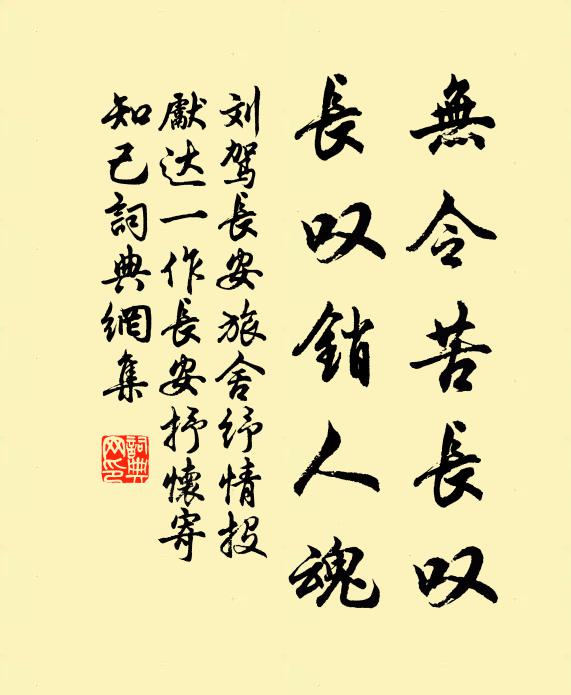 無令苦長叹
長叹銷人魂
刘驾長安旅舍纾情投
獻达一作長安抒懷寄
知己詞典網集
詞典
网印